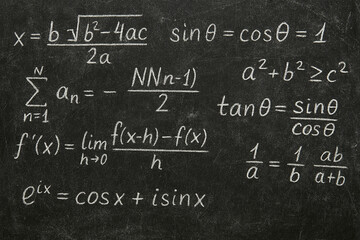 x = b √b²-4ac / 2a
sinθ = cosθ = 1
N ∑ n=1 aₙ = - NNn-1) / 2
a² + b² ≥ c²
tanθ = sinθ / cosθ
f'(x) = lim h→0 f(x-h)-f(x) / h
1/a = 1/b ab/a+b
e^ix = cosx + isinx